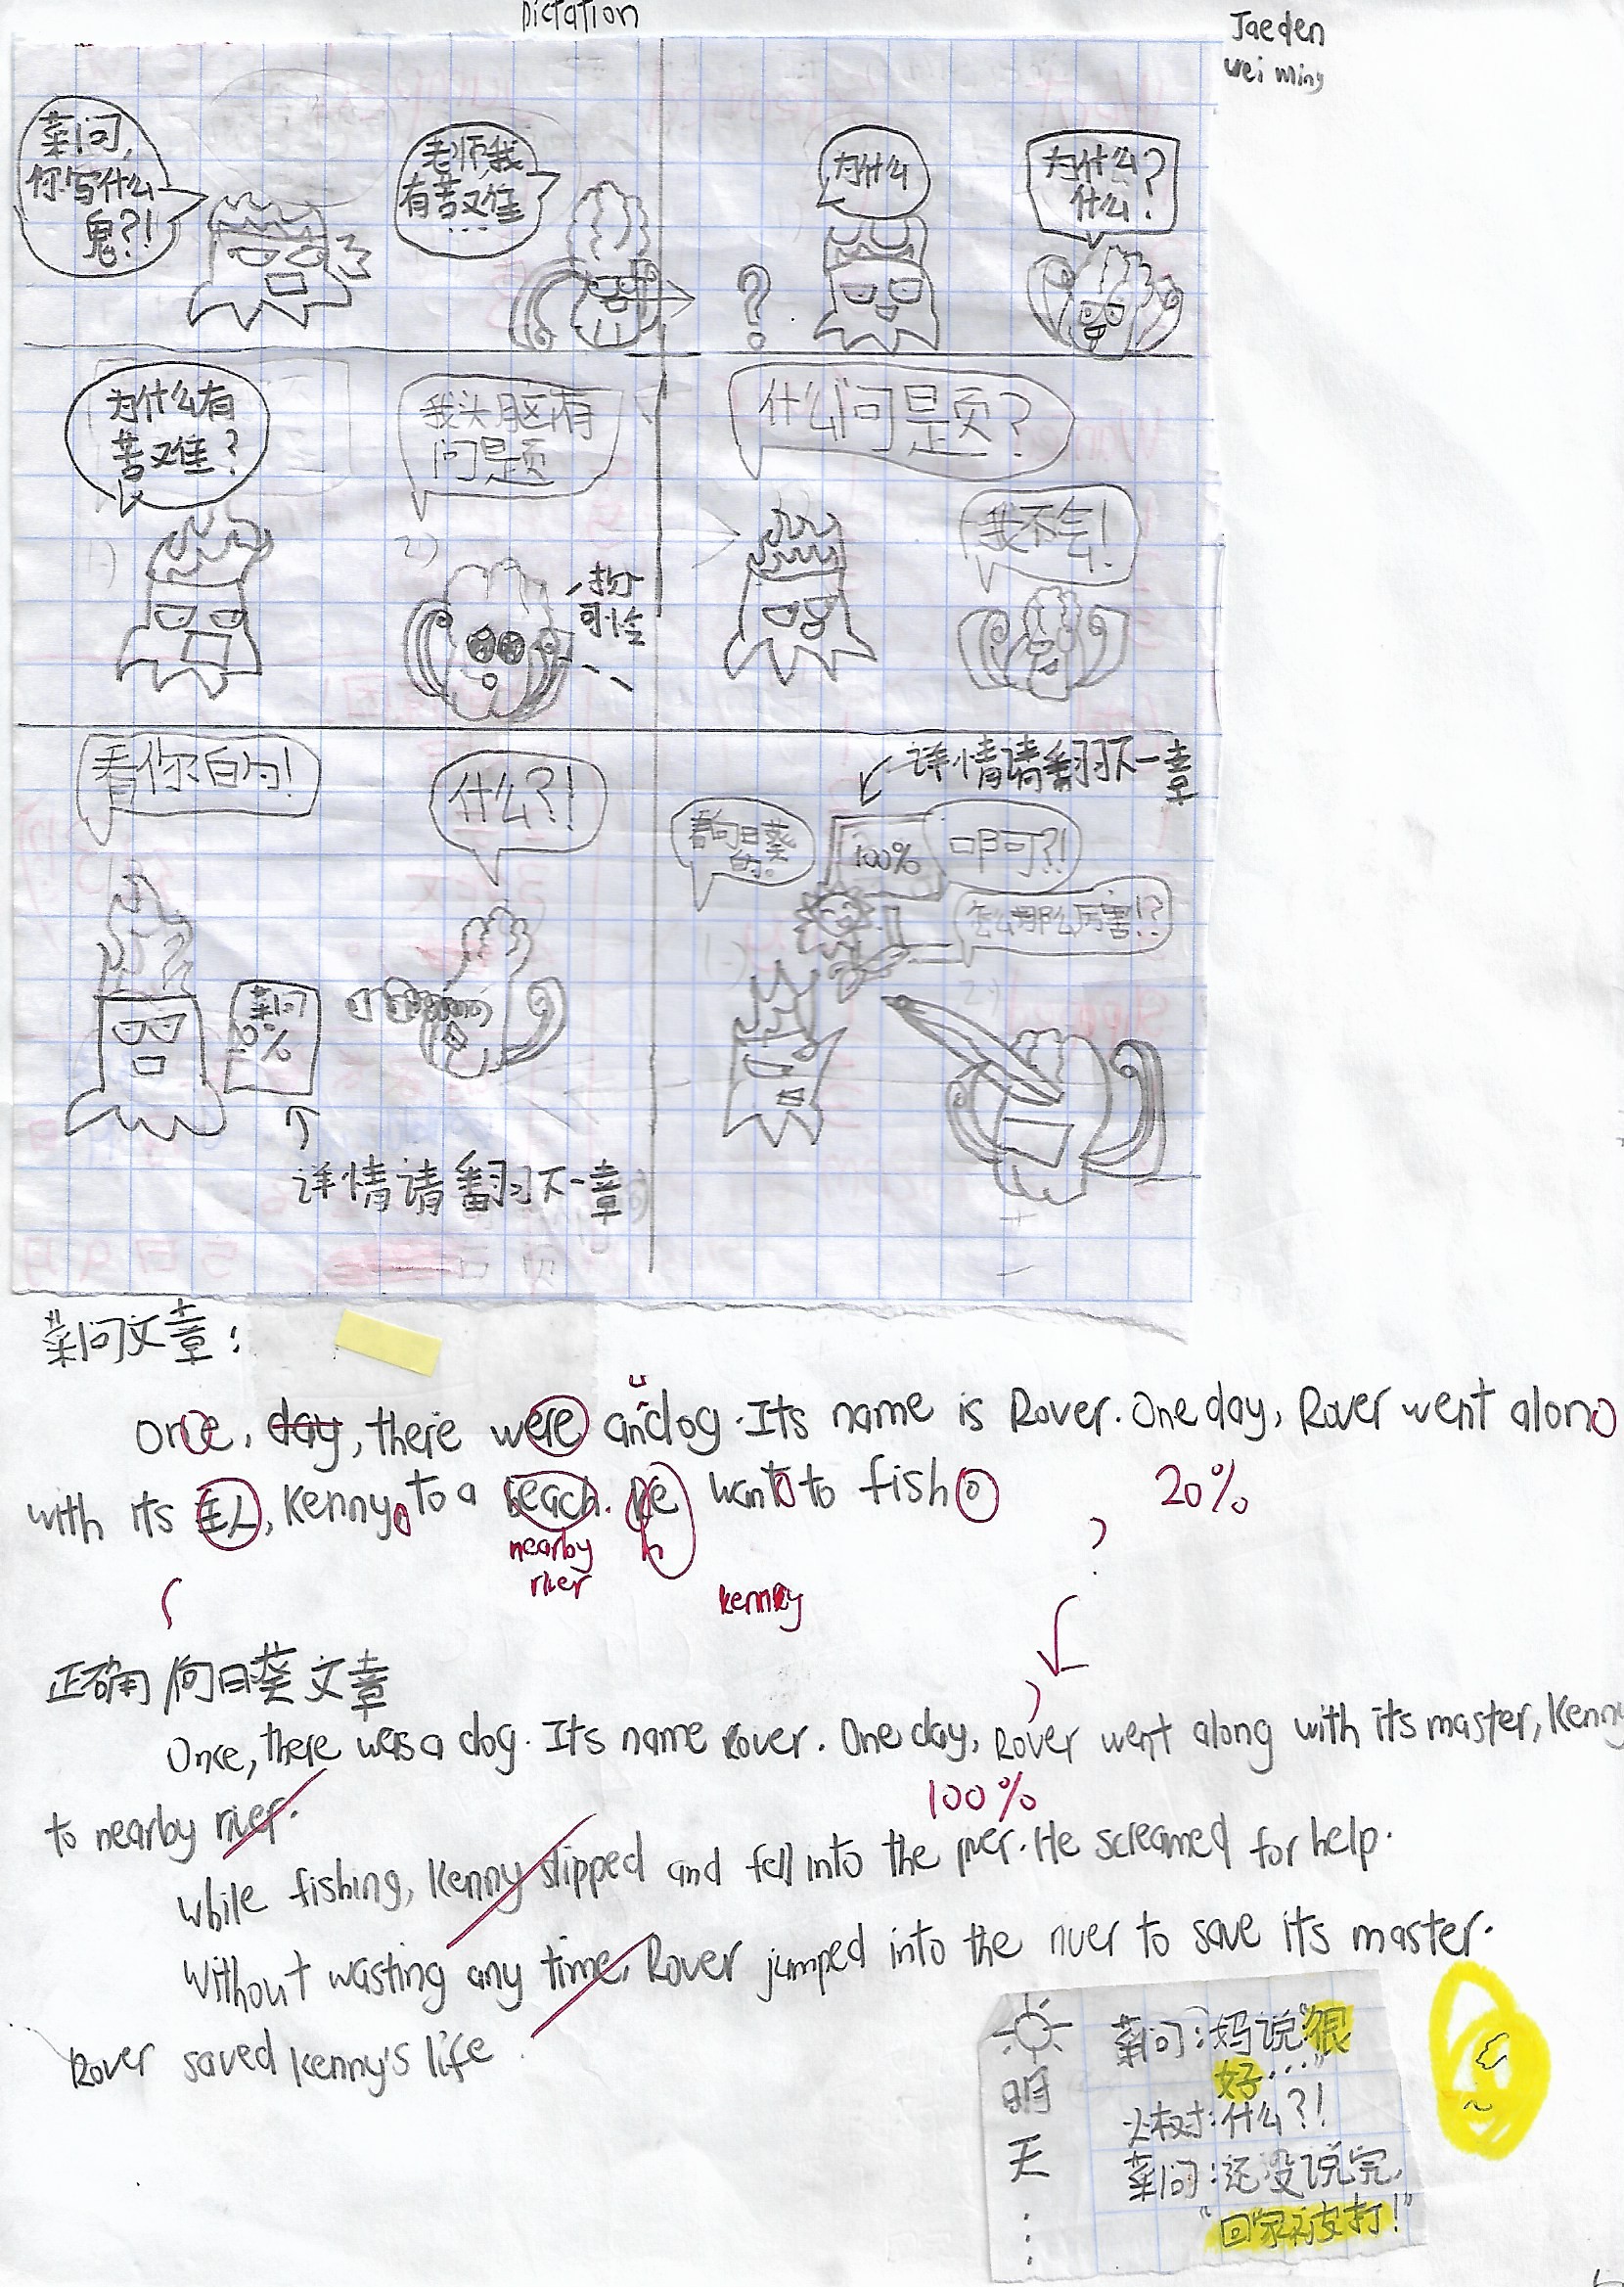 Dictation
Jaeden
Wei Ming
菜问,
你写什么
鬼?!
老师,我
有苦难
...
为什么
?
为什么?
什么?
为什么有
苦难?
我头脑有
问题
1)
2)
扮
可怜
什么问题?
我不气!
看你白勺!
什么?!
菜问
0%
详情请翻下一章
详情请翻下一章
看向日葵
的。
100%
叩可?!
怎么那么厉害!?
菜问文章:
Once, day, there were an dog. Its name is Rover. One day, Rover went alono
with its 主人, Kenny to a beach. He want to fish.
20%
nearby
river
h
Kenny
?
正确/向日葵文章
Once, there was a dog. Its name Rover. One day, Rover went along with its master, Kenny
100%
to nearby river.
While fishing, Kenny slipped and fell into the river. He screamed for help.
Without wasting any time, Rover jumped into the river to save its master.
Rover saved Kenny's life.
明
天
...
菜问:妈说"很
好..."
火树:什么?!
菜问:还没说完,
"回家被打!"